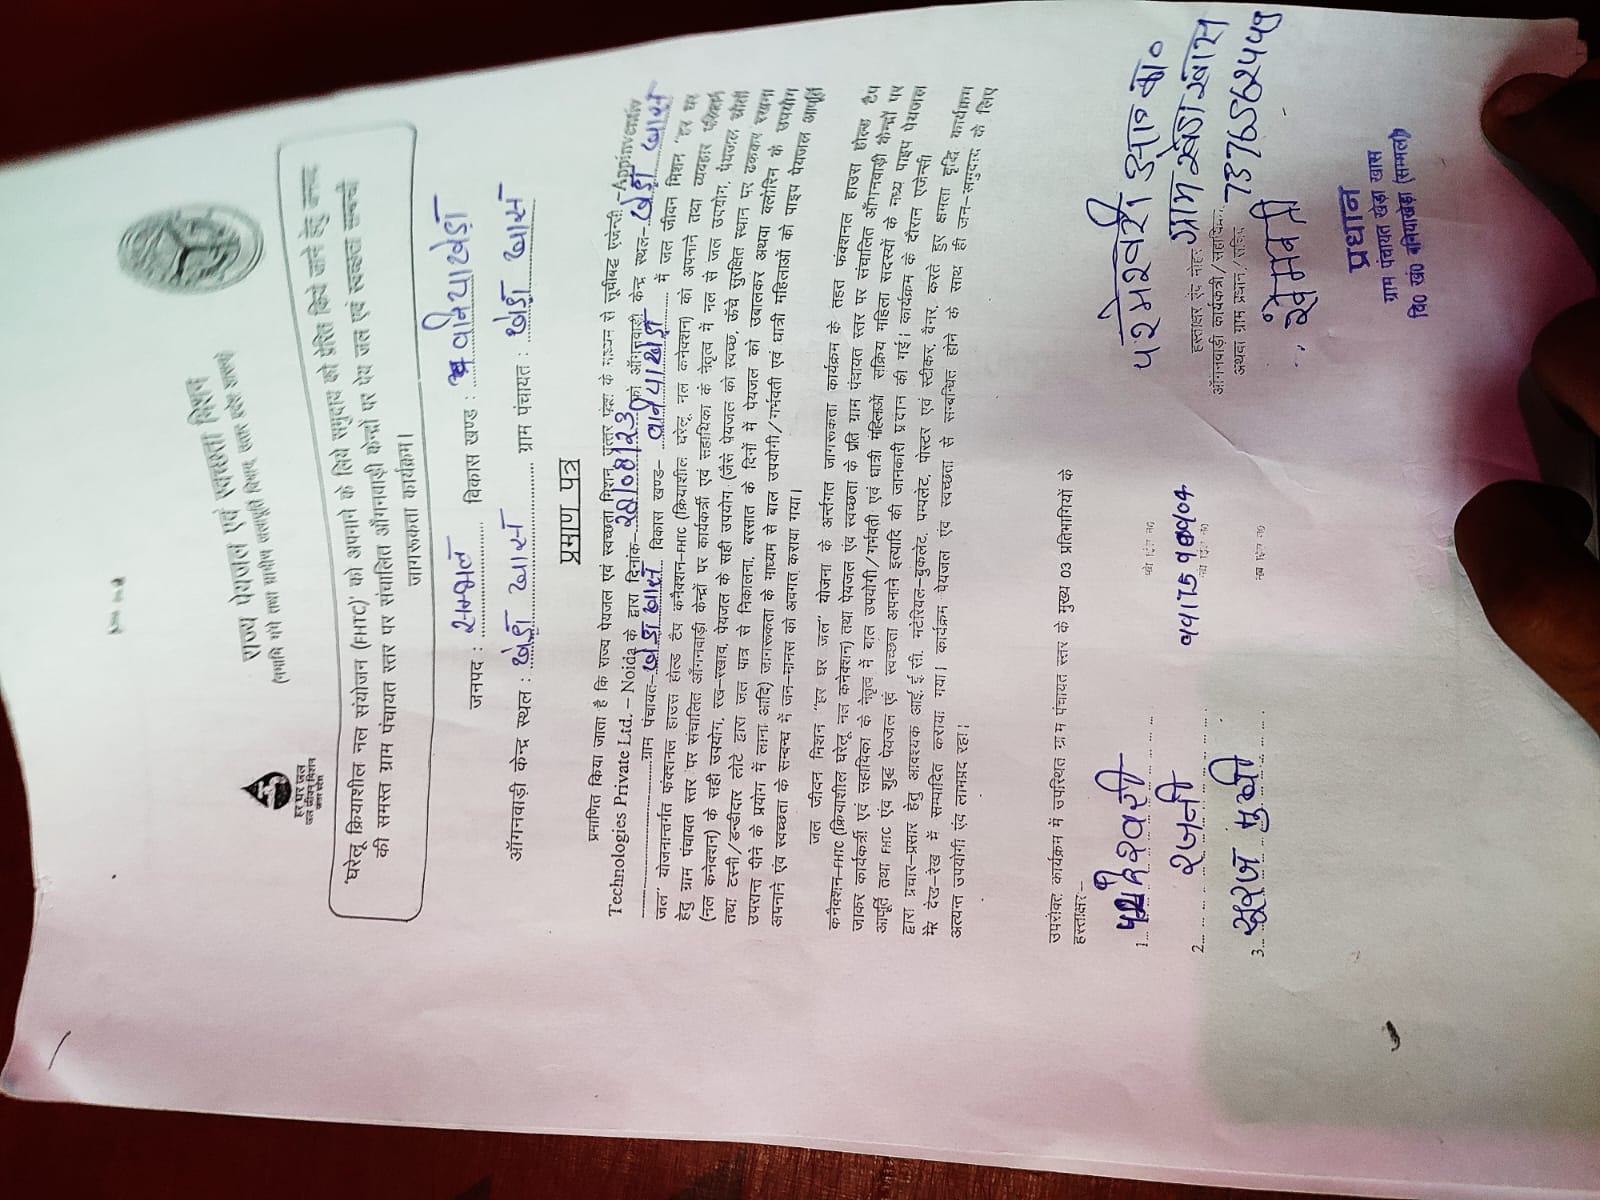 राज्य पेयजल एवं स्वच्छता मिशन
(नमामि गंगे तथा ग्रामीण जलापूर्ति विभाग, उत्तर प्रदेश शासन)
हर घर जल
जल जीवन मिशन
'घरेलू क्रियाशील नल संयोजन (FHTC)' को अपनाने के लिये समुदाय को प्रेरित किये जाने हेतु जनपद
की समस्त ग्राम पंचायत स्तर पर संचालित आँगनवाड़ी केन्द्रों पर पेय जल एवं स्वच्छता सम्बन्धी
जागरूकता कार्यक्रम।
जनपद : सम्भल विकास खण्ड : वनियाखेड़ा
आँगनवाड़ी केन्द्र स्थल : खेड़ा खास ग्राम पंचायत : खेड़ा खास
प्रमाण पत्र
प्रमाणित किया जाता है कि राज्य पेयजल एवं स्वच्छता मिशन उत्तर प्रदेश के माध्यम से सूचीबद्ध एजेन्सी -Appinventiv
Technologies Private Ltd. – Noida के द्वारा दिनांक- को आँगनवाड़ी केन्द्र स्थल- खेड़ा खास
ग्राम पंचायत- खेड़ा खास विकास खण्ड- वनियाखेड़ा में जल जीवन मिशन "हर घर
जल" योजनान्तर्गत फंक्शनल हाउस होल्ड टैप कनैक्शन-FHTC (क्रियाशील घरेलू नल कनेक्शन) को अपनाने तथा व्यवहार परिवर्तन
हेतु ग्राम पंचायत स्तर पर संचालित आँगनवाड़ी केन्द्रों पर कार्यकर्त्री एवं सहायिका के नेतृत्व में नल से जल उपयोग, पेयजल स्रोत
(नल कनेक्शन) के सही उपयोग, रख-रखाव, पेयजल के सही उपयोग (जैसे पेयजल को स्वच्छ, ऊँचे सुरक्षित स्थान पर ढककर रखना
तथा टल्नी/डन्डीदार लोटे द्वारा जल पात्र से निकालना, बरसात के दिनों में पेयजल को उबालकर अथवा क्लोरिन के उपयोग
उपरान्त पीने के प्रयोग में लाना आदि) जागरूकता के माध्यम से बाल उपयोगी/गर्भवती एवं धात्री महिलाओं को पाइप पेयजल आपूर्ति
अपनाने एंव स्वच्छता के सम्बन्ध में जन-मानस को अवगत कराया गया।
जल जीवन मिशन "हर घर जल" योजना के अर्न्तगत जागरूकता कार्यक्रम के तहत फंक्शनल हाउस होल्ड टैप
कनैक्शन-FHTC (क्रियाशील घरेलू नल कनेक्शन) तथा पेयजल एंव स्वच्छता के प्रति ग्राम पंचायत स्तर पर संचालित आँगनवाड़ी केन्द्रों पर
जाकर कार्यकर्त्री एवं सहायिका के नेतृत्व में बाल उपयोगी/गर्भवती एवं धात्री महिलाओं सक्रिय महिला सदस्यों के मध्य पाइप पेयजल
आपूर्ति तथा FHTC एंव शुद्ध पेयजल एवं स्वच्छता अपनाने इत्यादि की जानकारी प्रदान की गई। कार्यक्रम के दौरान एजेन्सी
द्वारा प्रचार-प्रसार हेतु आवश्यक आई. ई. सी. मटेरियल-बुकलेट, पम्पलेट, पोस्टर एवं स्टीकर, बैनर, करते हुए क्षमता वृद्धि कार्यक्रम
मेरे देख-रेख में सम्पादित कराया गया। कार्यक्रम पेयजल एंव स्वच्छता से सम्बंधित होने के साथ ही जन-समुदाय के लिए
अत्यन्त उपयोगी एंव लाभप्रद रहा।
उपरोक्त कार्यक्रम में उपस्थित ग्राम पंचायत स्तर के मुख्य 03 प्रतिभागियों के
हस्ताक्षर:-
1. परमेश्वरी
2. रजनी
3. सूरज मुखी
परमेश्वरी आ० का०
हस्ताक्षर एंव मोहर ग्राम खेड़ा खास
आँगनवाड़ी कार्यकत्री/सहायिका
अथवा ग्राम प्रधान/सचिव
खेमवती
प्रधान
ग्राम पंचायत खेड़ा खास
वि० खं० बनियाखेड़ा (सम्भल)